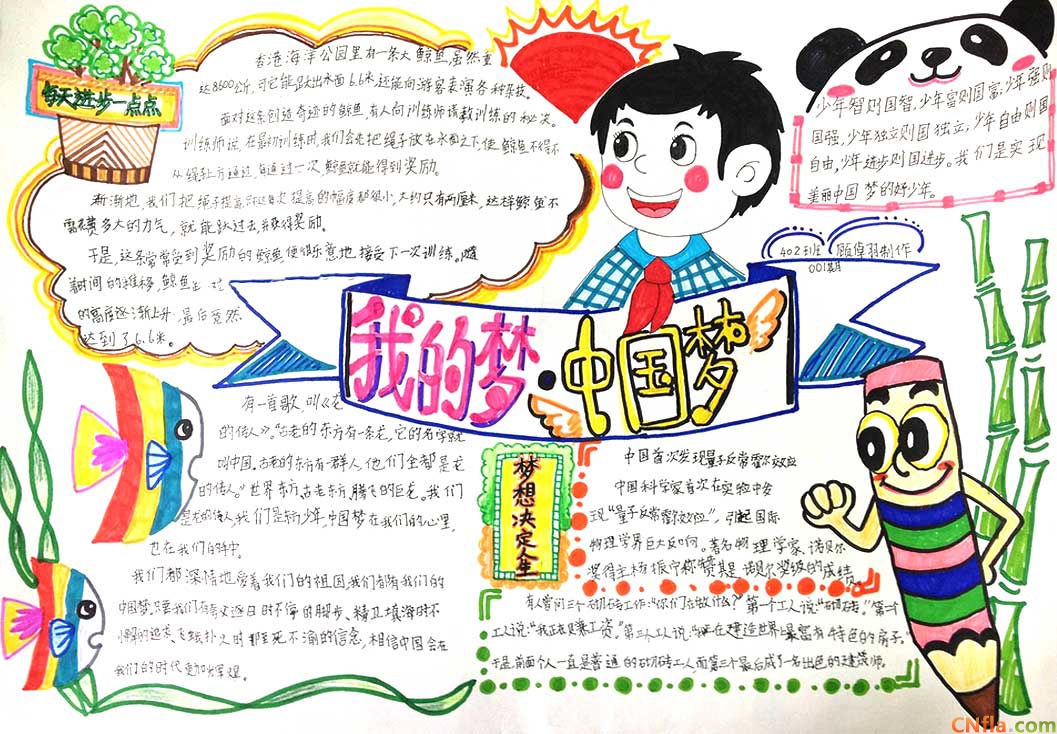 每天进步一点点
香港海洋公园里有一条大鲸鱼,虽然重
达8600公斤,可它能跃出水面6.6米,还能向游客表演各种杂技。
面对这条创造奇迹的鲸鱼,有人向训练师请教训练的秘决。
训练师说,在最初训练时,我们会先把绳子放在水面之下,使鲸鱼不得不
从绳子上方通过,每通过一次,鲸鱼就能得到奖励。
渐渐地,我们把绳子提高,只不过每次提高的幅度都很小,大约只有两厘米,这样鲸鱼不
需费多大的力气,就能跃过去并获得奖励。
于是,这条常常受到奖励的鲸鱼便很乐意地接受下一次训练。随
着时间的推移,鲸鱼
的高度逐渐上升,最后竟然
达到了6.6米。
少年智则国智,少年富则国富,少年强则
国强,少年独立则国独立,少年自由则国
自由,少年进步则国进步。我们是实现
美丽中国梦的好少年。
402班 顾倬羽制作
001期
我的梦·中国梦
有一首歌,叫《龙
的传人》。"古老的东方有一条龙,它的名字就
叫中国,古老的东方有一群人,他们全都是龙
的传人。"世界东方,古老东方,腾飞的巨龙。我们
是龙的传人,我们是新少年,中国梦在我们的心里,
也在我们的手中。
我们都深情地爱着我们的祖国,我们都有我们的
中国梦,只要我们有夸父逐日时不停的脚步、精卫填海时不
懈的追求、飞蛾扑火时那至死不渝的信念,相信中国会在
我们的时代更加辉煌。
梦想决定人生
中国首次发现量子反常霍尔效应
中国科学家首次在实验中发
现"量子反常霍尔效应",引起国际
物理学界巨大反响。著名物理学家、诺贝尔
奖得主杨振宁称赞其是诺贝尔奖级的成绩。
有人曾问三个砌砖工作:"你们在做什么?"第一个工人说:"砌砖。"第二个
工人说:"我正在赚工资。"第三个工人说:"我正在建造世界上最富有特色的房子。"
于是前面个人一直是普通的砌砖工人,而第三个最后成了一名出色的建筑师。
CNfla.com